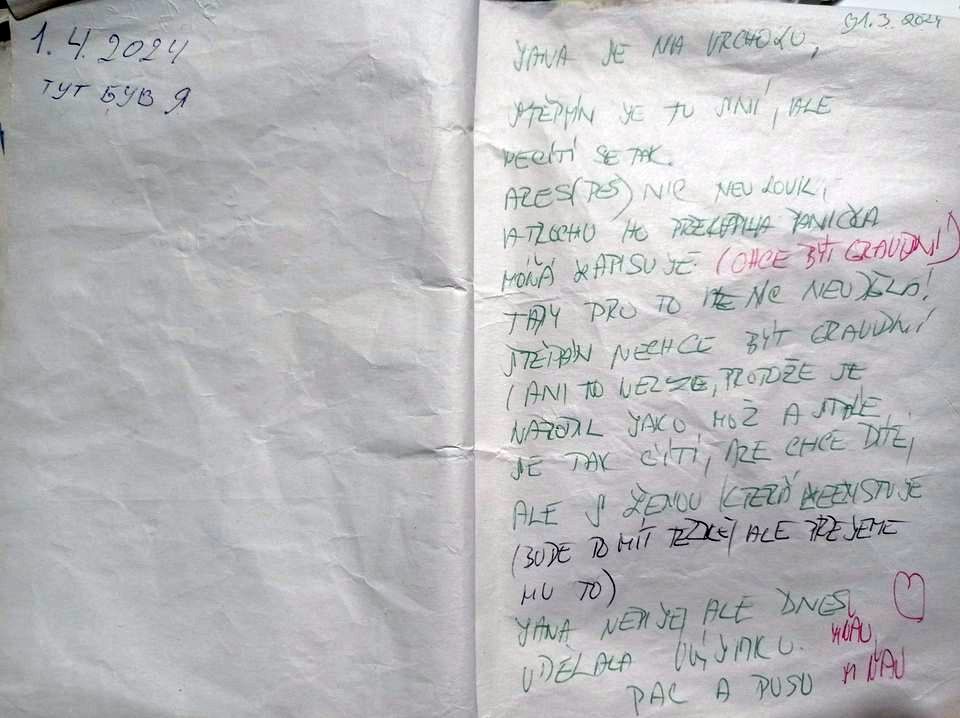 1.4.2024
ТУТ БУВ Я
31.3.2024
JANA JE NA VRCHOLU,
ŠTĚPÁN JE TU JINÍ, ALE
NECÍTÍ SE TAK.
ARES(PES) NIC NEULOVIL,
A TROCHU HO PANIČKA
MÍŇÁ ZAPISUJE. (CHCE BÝT GRAVIDNÍ!)
TADY PRO TO NIC NEUDĚLÁ!
ŠTĚPÁN NECHCE BÝT GRAVIDNÍ
(ANI TO NELZE, PROTOŽE SE
NARODIL JAKO MUŽ A STÁLE
SE TAK CÍTÍ, ALE CHCE DÍTĚ,
ALE S ŽENOU KTERÁ NEEXISTUJE
(BUDE TO MÍT TEŽKÉ) ALE PŘEJEME
MU TO)
JANA NEPIJE, ALE DNES
UDĚLALA VÝJIMKU. MŇAU
PAC A PUSU MŇAU